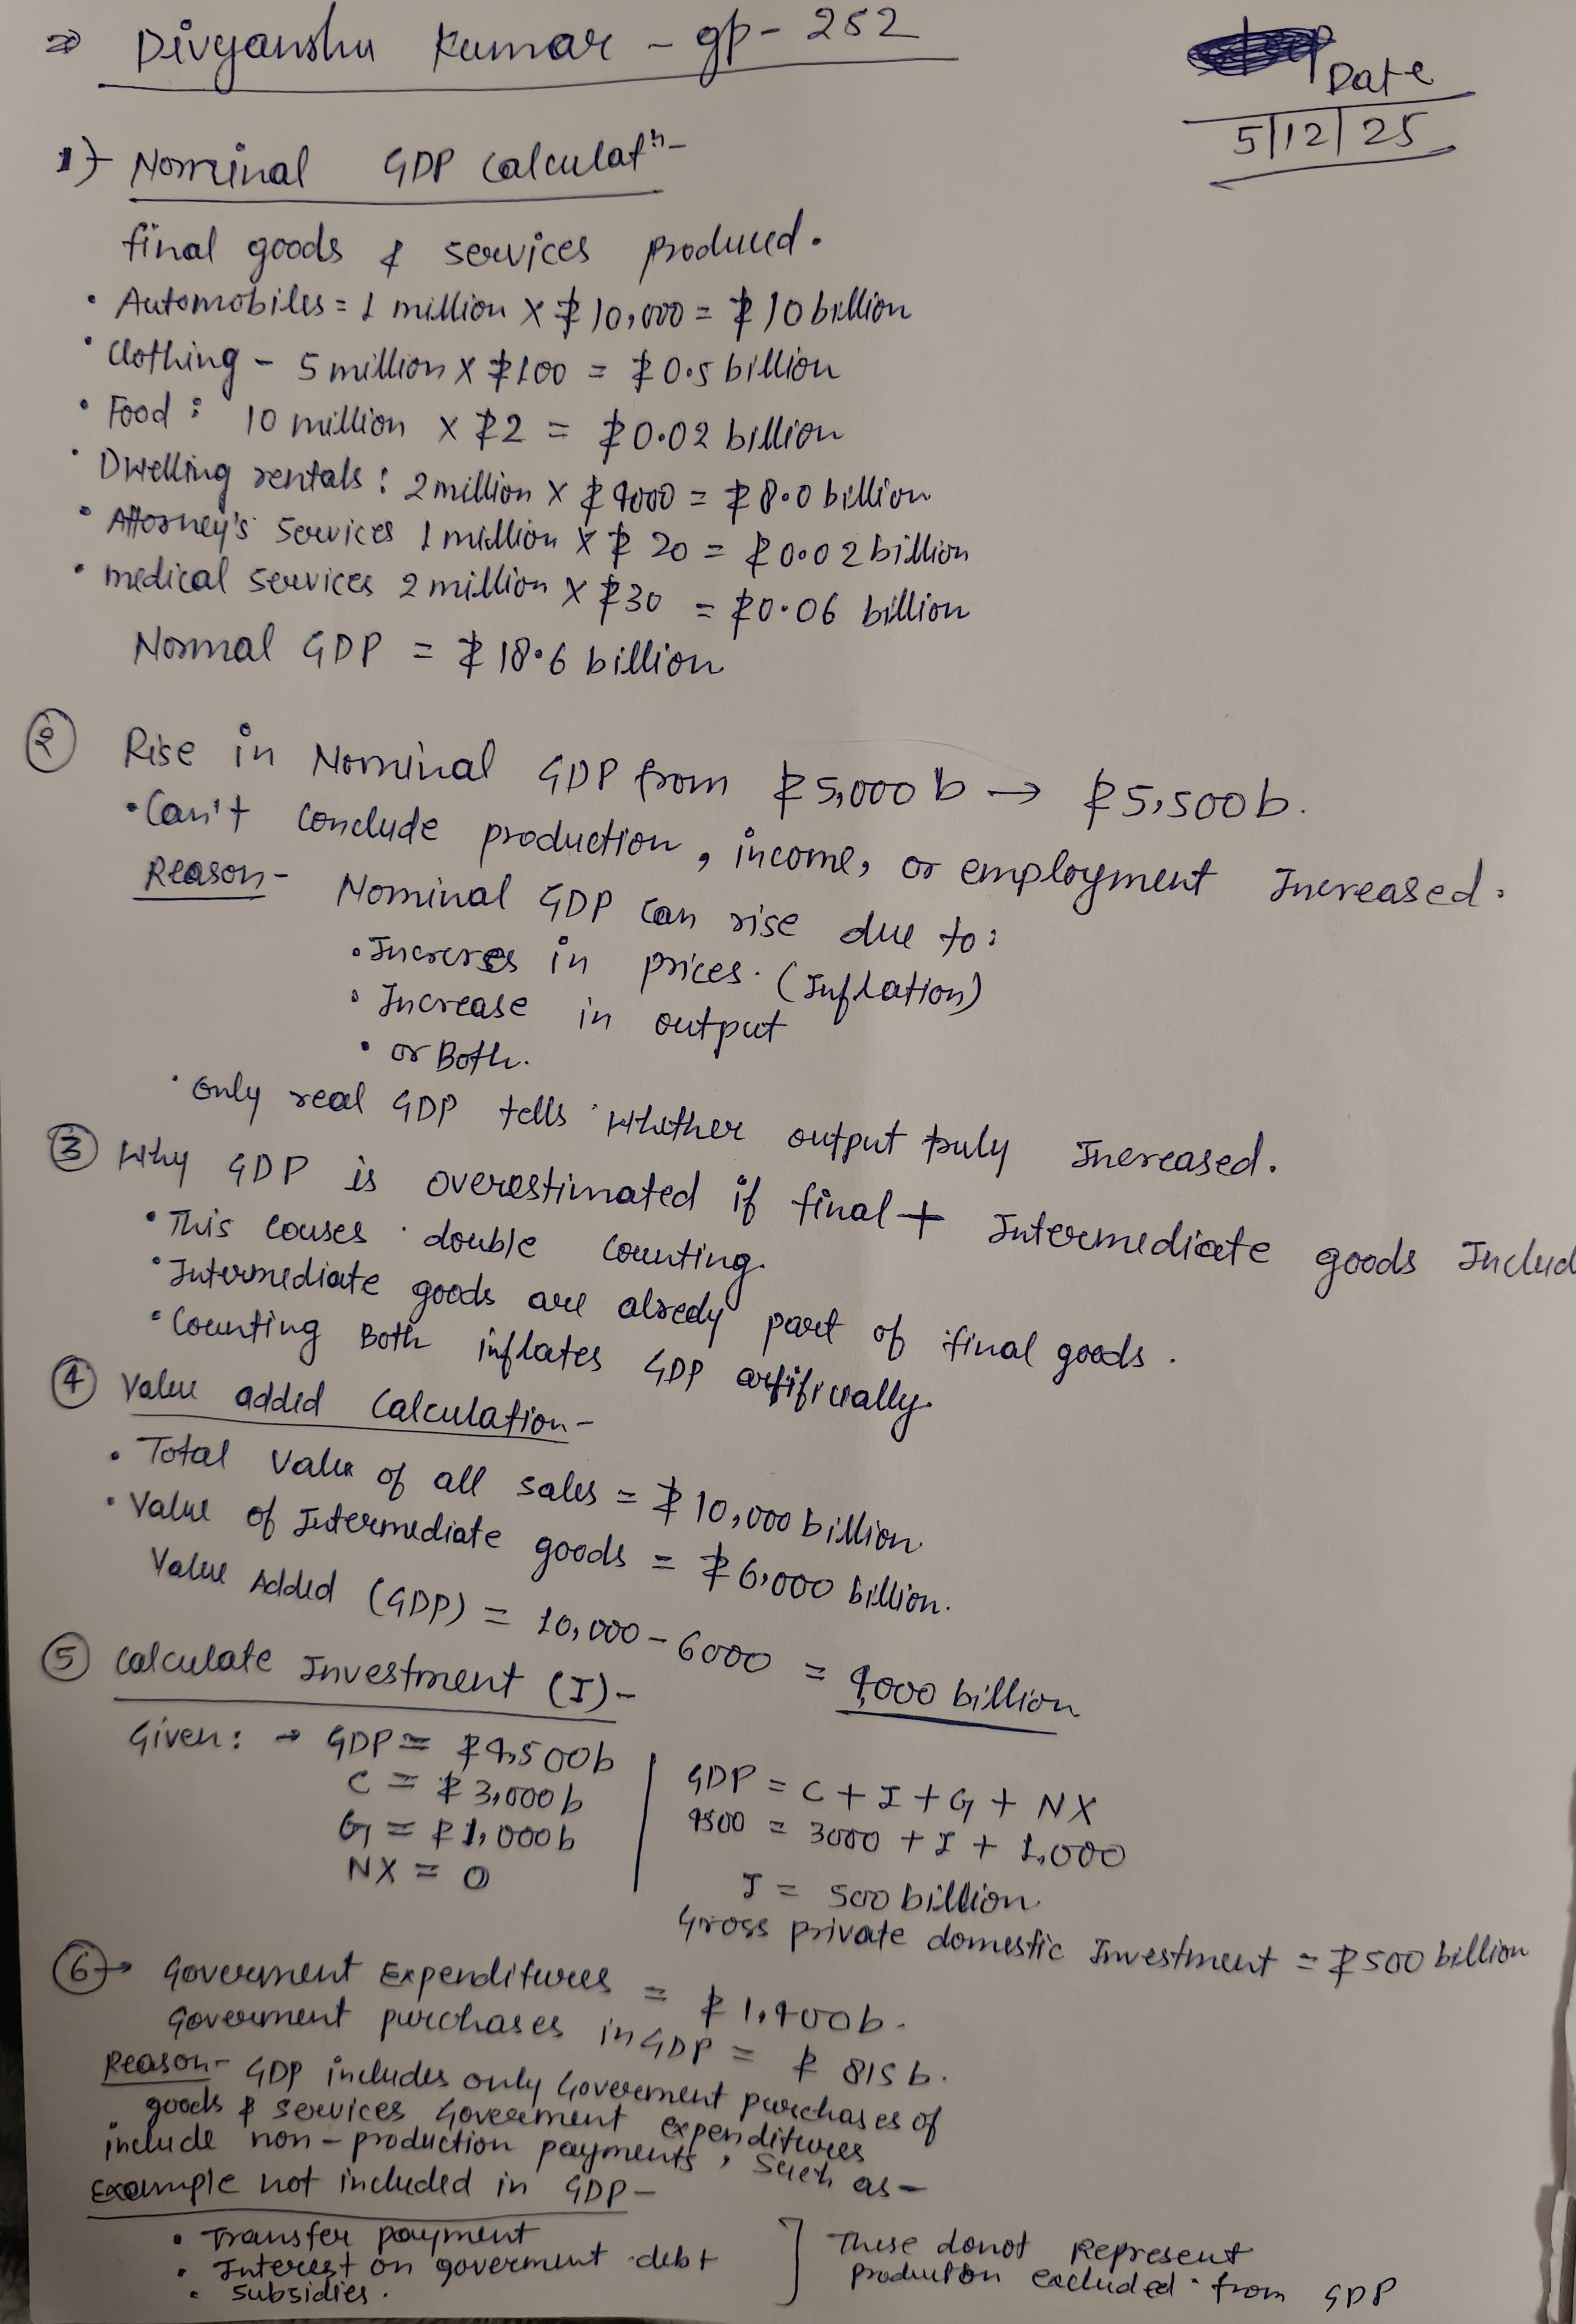 ⇒ Divyanshu Kumar - gp - 252
Date
5/12/25
1) Nominal GDP Calculatⁿ-
final goods & services produced.
• Automobiles = 1 million X $10,000 = $10 billion
• Clothing - 5 million X $100 = $0.5 billion
• Food : 10 million X $2 = $0.02 billion
• Dwelling rentals : 2 million X $4000 = $8.0 billion
• Attorney's Services 1 million X $20 = $0.02 billion
• medical services 2 million X $30 = $0.06 billion
Normal GDP = $18.6 billion
② Rise in Nominal GDP from $5,000 b → $5,500 b.
• Can't conclude production, income, or employment Increased.
Reason- Nominal GDP can rise due to:
• Increses in prices. (Inflation)
• Increase in output
• or Both.
• Only real GDP tells whether output truly Increased.
③ Why GDP is overestimated if final + Intermediate goods Includ
• This couses double counting.
• Intermediate goods are alredy part of final goods.
• Counting Both inflates GDP artificially.
④ Value added Calculation-
• Total Value of all sales = $10,000 billion.
• Value of Intermediate goods = $6,000 billion.
Value Added (GDP) = 10,000 - 6000 = 4,000 billion
⑤ Calculate Investment (I)-
Given: → GDP = $4,500b
C = $3,000 b
G = $1,000 b
NX = 0
GDP = C + I + G + NX
4500 = 3000 + I + 1,000
I = 500 billion
Gross private domestic Investment = $500 billion
⑥→ Goverment Expenditures = $1,400b.
Goverment purchases in GDP = $815 b.
Reason- GDP includes only Goverment purchases of
goods & services Goverment expenditures
include non-production payments, such as-
Example not included in GDP-
• Transfer payment
• Interest on goverment debt
• subsidies.
These donot Represent
production excluded from GDP